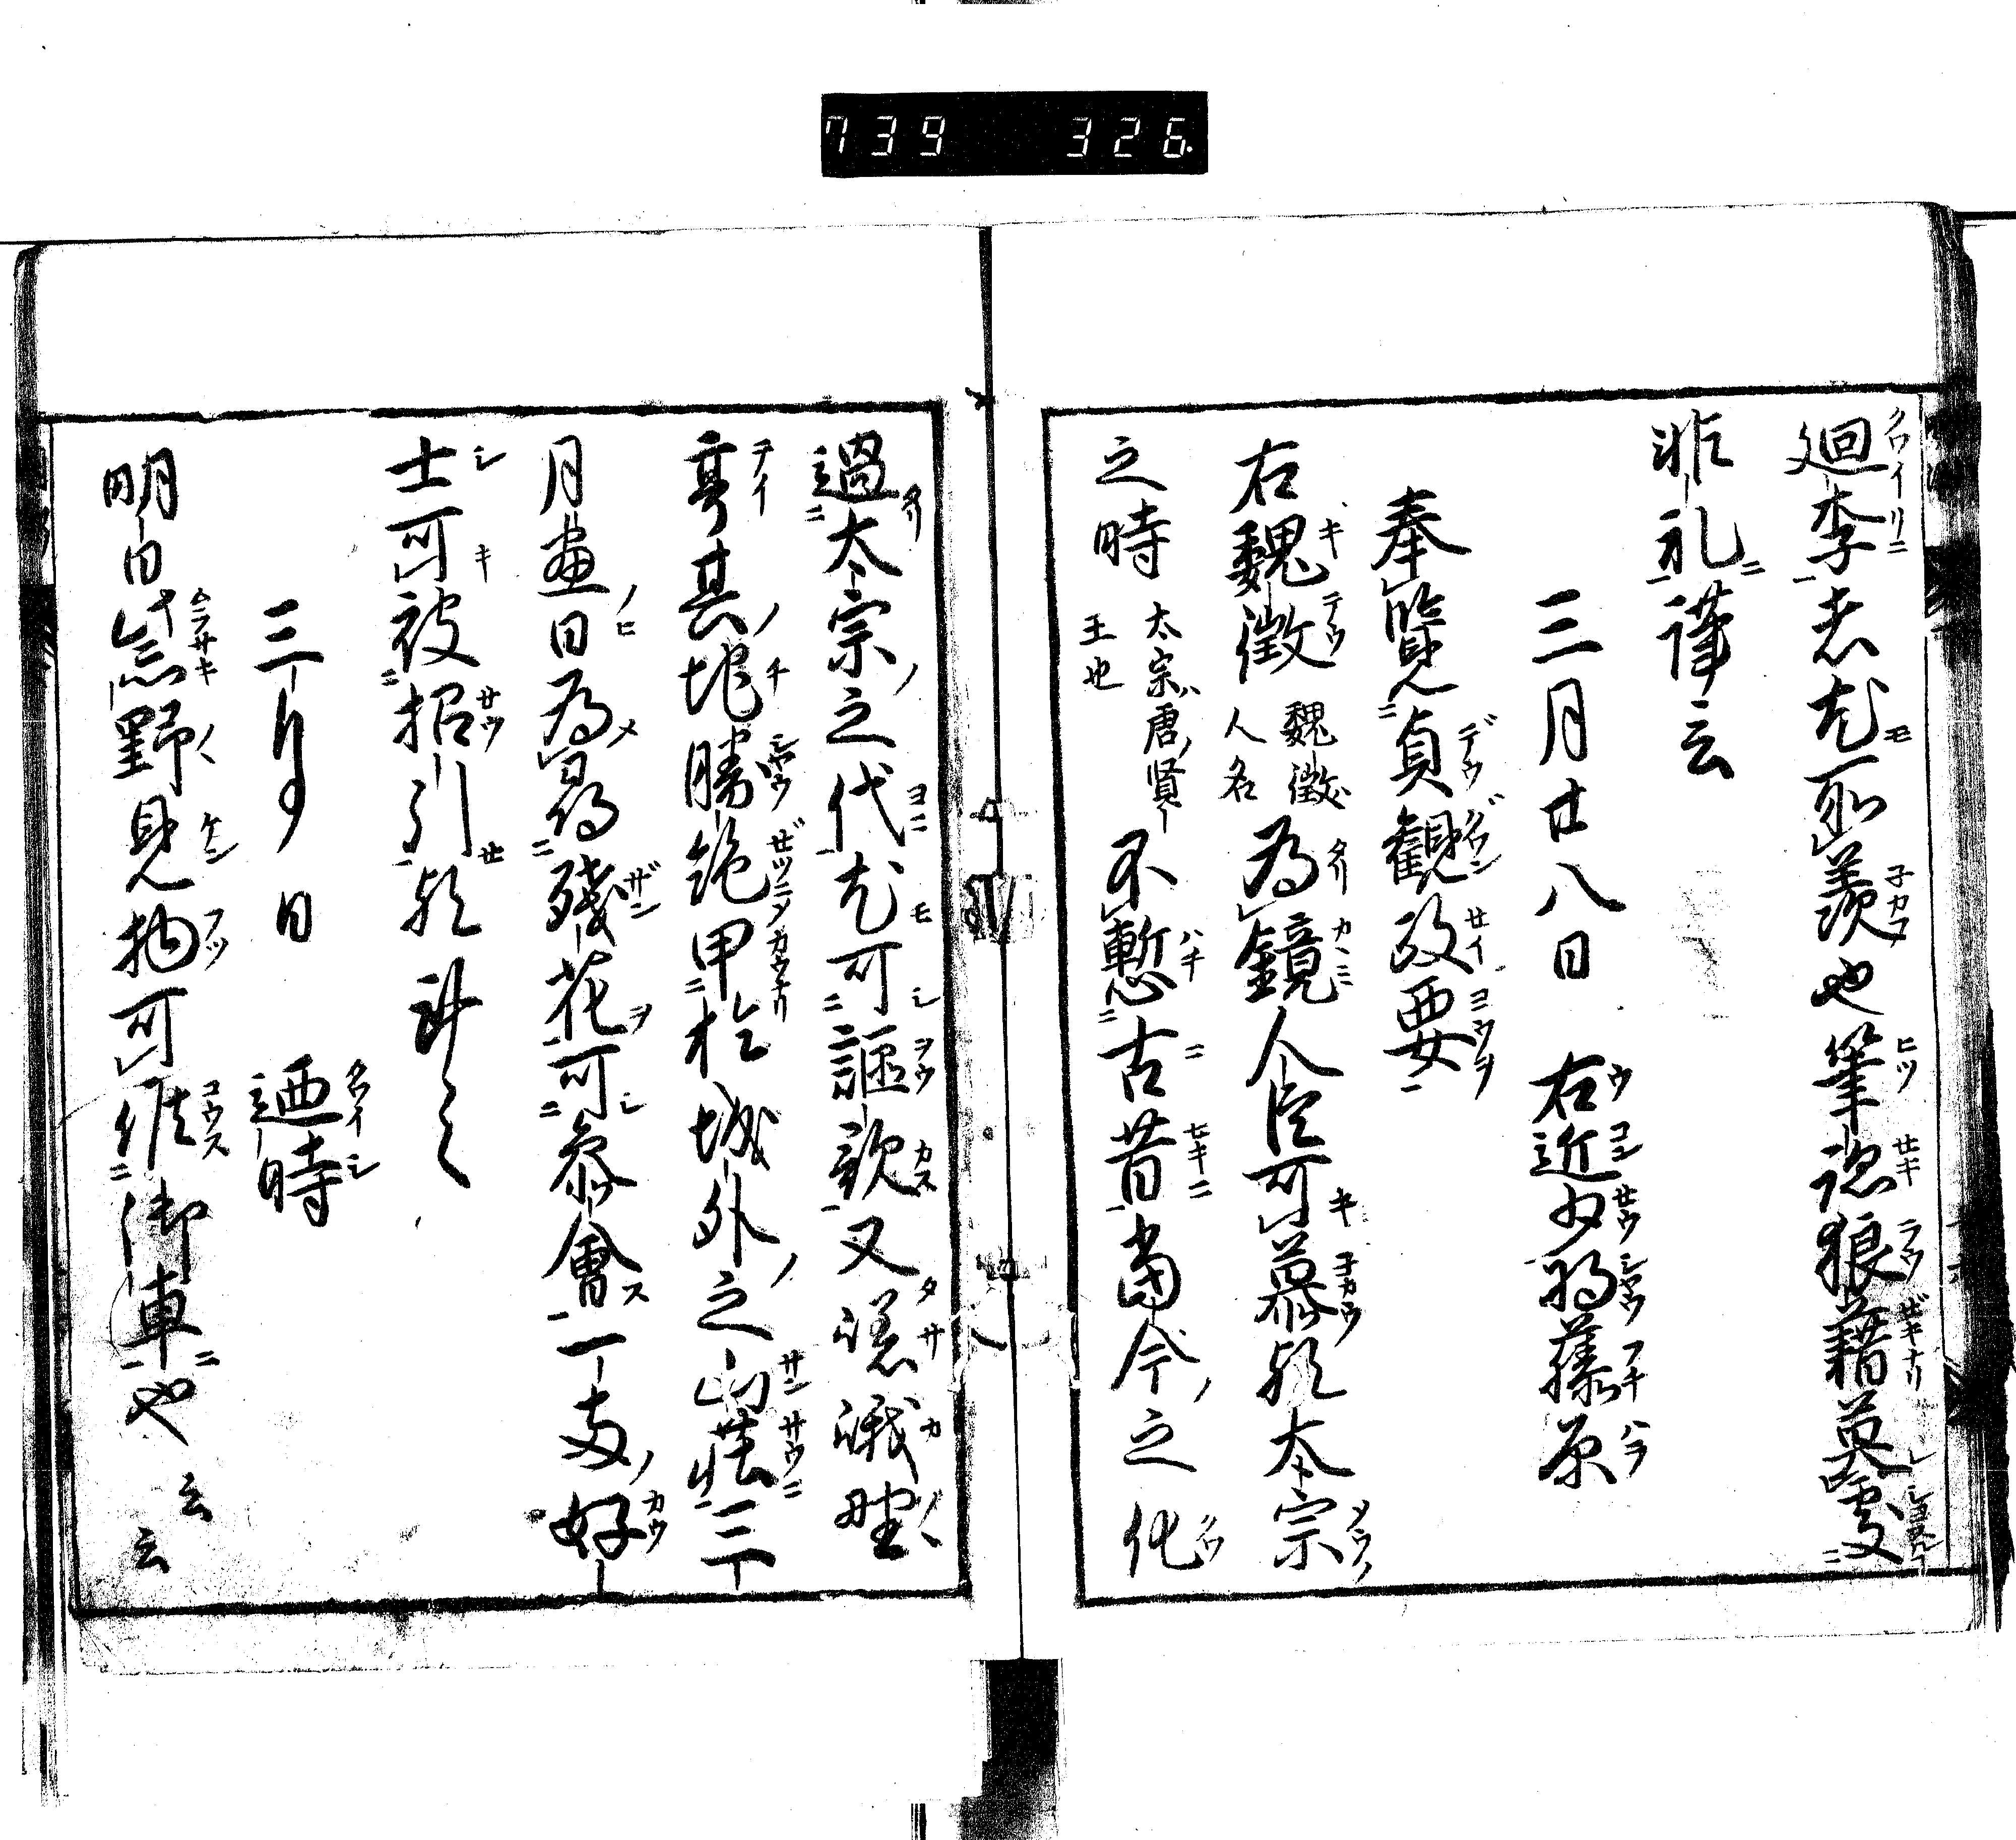 739 326.
廻李老尤所羨也筆
狼藉莫
非礼謹云
三月廿八日 右近少将藤原
奉覧貞観政要
右魏徴 魏徴
人名 為鏡人臣可慕歟太宗
之時 太宗ハ唐ノ賢
王也 不慙古昔当今ノ之化
過太宗ノ之代尤可謳歌又嵯峨野
亭其ノ地勝絶甲於城外ノ之山荘三
月尽日為尋残花可参会一両ノ好
士可被招引歟
三月 日 廼時
明日紫野見物可候御車也 云
云